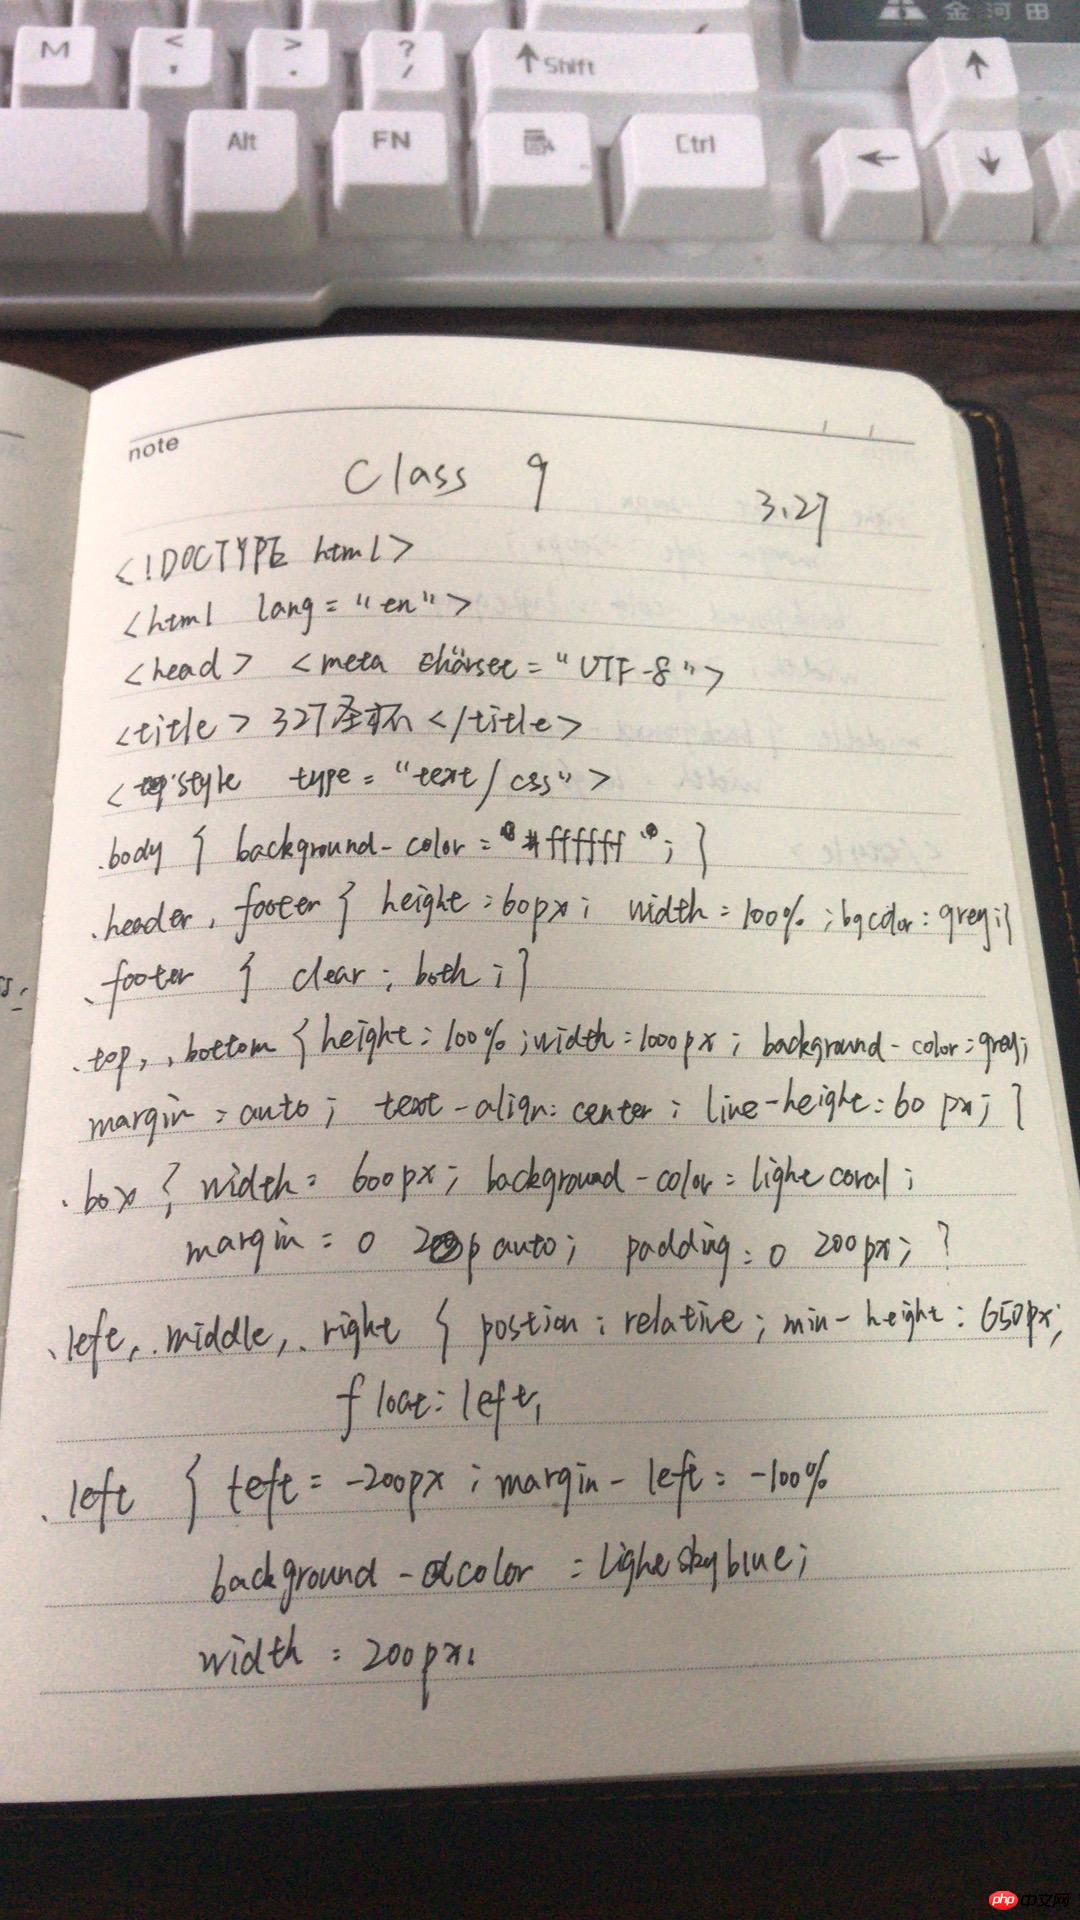 金河田
M
<
,
>
.
?
/
↑Shift
↑
Alt
FN
Ctrl
←
↓
note
Class 9
3.27
<!DOCTYPE html>
<html lang="en">
<head> <meta charset="UTF-8">
<title> 327圣杯 </title>
<style type="text/css">
.body { background-color: #ffffff ; }
.header, footer { height:60px; width:100% ;bgcolor:grey;}
.footer { clear: both ; }
.top, .bottom { height: 100% ;width:1000px ; background-color:grey;
margin:auto; text-align: center ; line-height:60 px; }
.box { width: 600px; background-color: lightcoral ;
margin: 0 auto; padding: 0 200px; }
.left, .middle, .right { postion: relative; min-height: 650px;
float: left;
.left { left: -200px ; margin-left: -100%
background-color : lightskyblue;
width : 200px;
php中文网